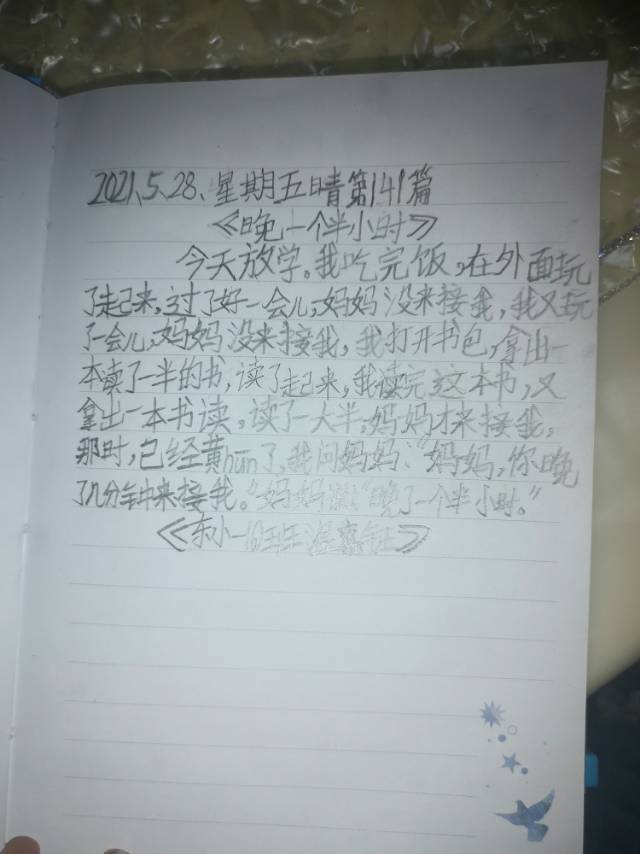 2021、5.28、星期五晴第141篇
《晚一个半小时》
今天放学。我吃完饭，在外面玩
了走己来，过了好一会儿，妈妈没来接我，我又玩
了一会儿，妈妈没来接我，我打开书包，拿出一
本卖了一半的书，读了走己来，我读完这本书，又
拿出一本书读。读了一大半，妈妈才来接我，
那时，已经黄hūn了，我问妈妈：“妈妈，你晚
了几分钟来接我。”妈妈说：“晚了一个半小时。”
《东小一